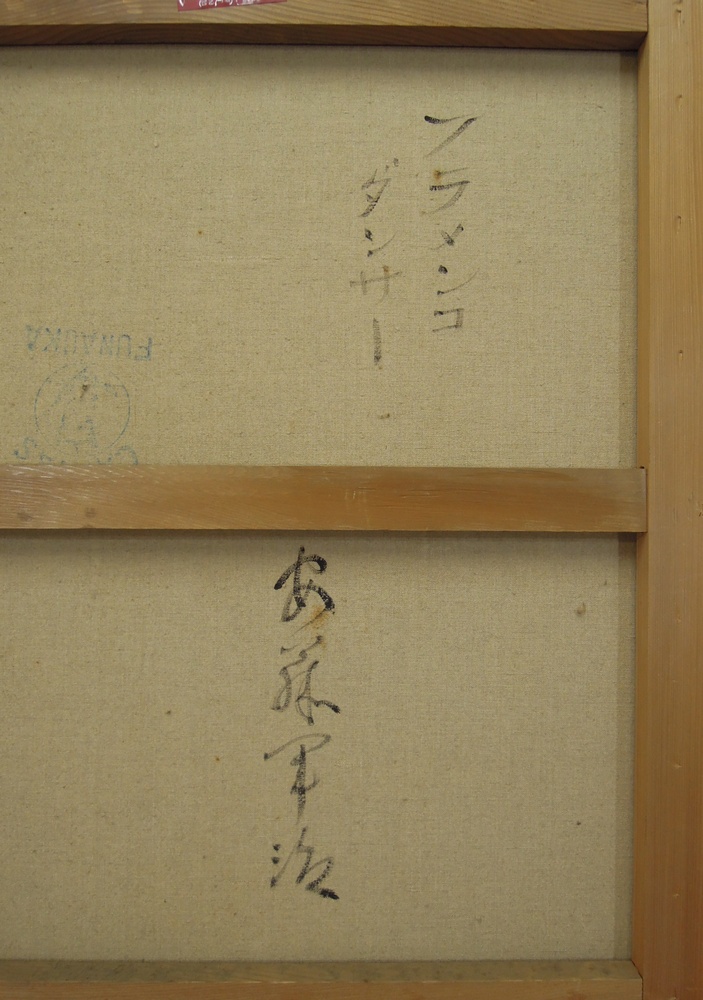 フラメンコ
ダンサー
安藤軍治
FUNAOKA